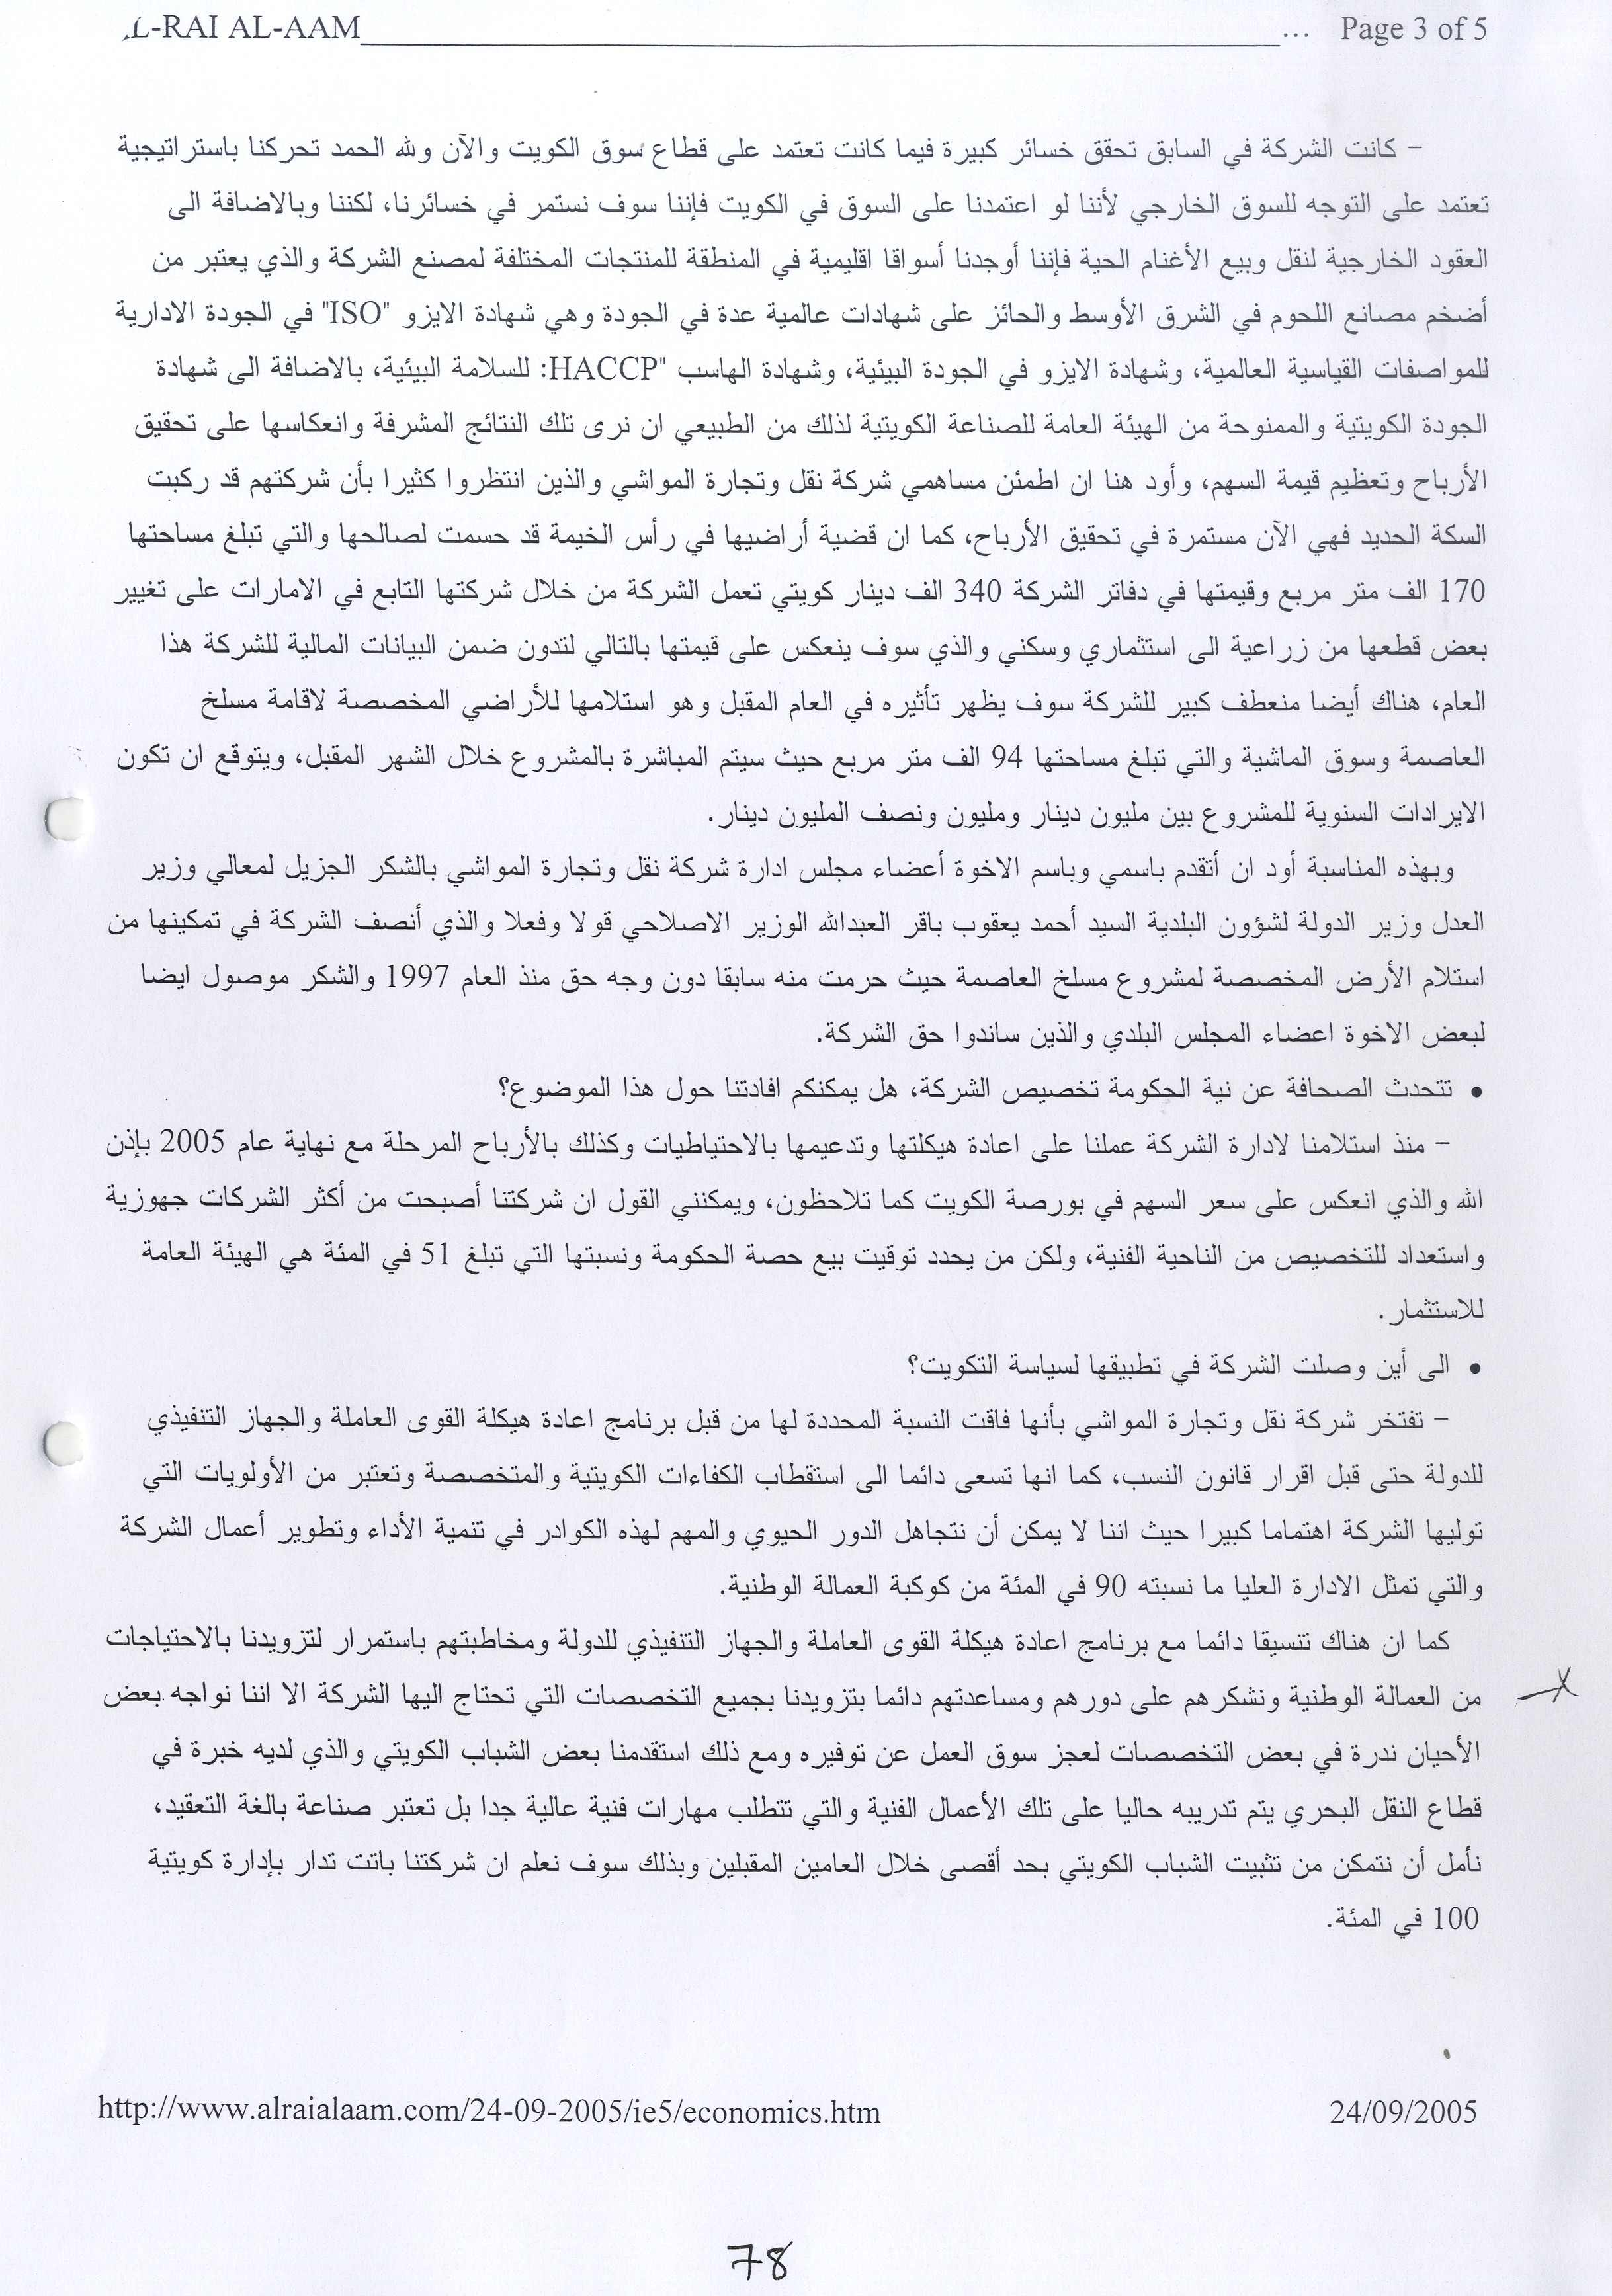 L-RAI AL-AAM ... Page 3 of 5
– كانت الشركة في السابق تحقق خسائر كبيرة فيما كانت تعتمد على قطاع سوق الكويت والآن ولله الحمد تحركنا باستراتيجية
تعتمد على التوجه للسوق الخارجي لأننا لو اعتمدنا على السوق في الكويت فإننا سوف نستمر في خسائرنا، لكننا وبالاضافة الى
العقود الخارجية لنقل وبيع الأغنام الحية فإننا أوجدنا أسواقا اقليمية في المنطقة للمنتجات المختلفة لمصنع الشركة والذي يعتبر من
أضخم مصانع اللحوم في الشرق الأوسط والحائز على شهادات عالمية عدة في الجودة وهي شهادة الايزو "ISO" في الجودة الادارية
للمواصفات القياسية العالمية، وشهادة الايزو في الجودة البيئية، وشهادة الهاسب "HACCP: للسلامة البيئية، بالاضافة الى شهادة
الجودة الكويتية والممنوحة من الهيئة العامة للصناعة الكويتية لذلك من الطبيعي ان نرى تلك النتائج المشرفة وانعكاسها على تحقيق
الأرباح وتعظيم قيمة السهم، وأود هنا ان اطمئن مساهمي شركة نقل وتجارة المواشي والذين انتظروا كثيرا بأن شركتهم قد ركبت
السكة الحديد فهي الآن مستمرة في تحقيق الأرباح، كما ان قضية أراضيها في رأس الخيمة قد حسمت لصالحها والتي تبلغ مساحتها
170 الف متر مربع وقيمتها في دفاتر الشركة 340 الف دينار كويتي تعمل الشركة من خلال شركتها التابع في الامارات على تغيير
بعض قطعها من زراعية الى استثماري وسكني والذي سوف ينعكس على قيمتها بالتالي لتدون ضمن البيانات المالية للشركة هذا
العام، هناك أيضا منعطف كبير للشركة سوف يظهر تأثيره في العام المقبل وهو استلامها للأراضي المخصصة لاقامة مسلخ
العاصمة وسوق الماشية والتي تبلغ مساحتها 94 الف متر مربع حيث سيتم المباشرة بالمشروع خلال الشهر المقبل، ويتوقع ان تكون
الايرادات السنوية للمشروع بين مليون دينار ومليون ونصف المليون دينار.
وبهذه المناسبة أود ان أتقدم باسمي وباسم الاخوة أعضاء مجلس ادارة شركة نقل وتجارة المواشي بالشكر الجزيل لمعالي وزير
العدل وزير الدولة لشؤون البلدية السيد أحمد يعقوب باقر العبدالله الوزير الاصلاحي قولا وفعلا والذي أنصف الشركة في تمكينها من
استلام الأرض المخصصة لمشروع مسلخ العاصمة حيث حرمت منه سابقا دون وجه حق منذ العام 1997 والشكر موصول ايضا
لبعض الاخوة اعضاء المجلس البلدي والذين ساندوا حق الشركة.
• تتحدث الصحافة عن نية الحكومة تخصيص الشركة، هل يمكنكم افادتنا حول هذا الموضوع؟
– منذ استلامنا لادارة الشركة عملنا على اعادة هيكلتها وتدعيمها بالاحتياطيات وكذلك بالأرباح المرحلة مع نهاية عام 2005 بإذن
الله والذي انعكس على سعر السهم في بورصة الكويت كما تلاحظون، ويمكنني القول ان شركتنا أصبحت من أكثر الشركات جهوزية
واستعداد للتخصيص من الناحية الفنية، ولكن من يحدد توقيت بيع حصة الحكومة ونسبتها التي تبلغ 51 في المئة هي الهيئة العامة
للاستثمار.
• الى أين وصلت الشركة في تطبيقها لسياسة التكويت؟
– تفتخر شركة نقل وتجارة المواشي بأنها فاقت النسبة المحددة لها من قبل برنامج اعادة هيكلة القوى العاملة والجهاز التنفيذي
للدولة حتى قبل اقرار قانون النسب، كما انها تسعى دائما الى استقطاب الكفاءات الكويتية والمتخصصة وتعتبر من الأولويات التي
توليها الشركة اهتماما كبيرا حيث اننا لا يمكن أن نتجاهل الدور الحيوي والمهم لهذه الكوادر في تنمية الأداء وتطوير أعمال الشركة
والتي تمثل الادارة العليا ما نسبته 90 في المئة من كوكبة العمالة الوطنية.
كما ان هناك تنسيقا دائما مع برنامج اعادة هيكلة القوى العاملة والجهاز التنفيذي للدولة ومخاطبتهم باستمرار لتزويدنا بالاحتياجات
من العمالة الوطنية ونشكرهم على دورهم ومساعدتهم دائما بتزويدنا بجميع التخصصات التي تحتاج اليها الشركة الا اننا نواجه بعض
الأحيان ندرة في بعض التخصصات لعجز سوق العمل عن توفيره ومع ذلك استقدمنا بعض الشباب الكويتي والذي لديه خبرة في
قطاع النقل البحري يتم تدريبه حاليا على تلك الأعمال الفنية والتي تتطلب مهارات فنية عالية جدا بل تعتبر صناعة بالغة التعقيد،
نأمل أن نتمكن من تثبيت الشباب الكويتي بحد أقصى خلال العامين المقبلين وبذلك سوف نعلم ان شركتنا باتت تدار بإدارة كويتية
100 في المئة.
http://www.alraialaam.com/24-09-2005/ie5/economics.htm 24/09/2005
78